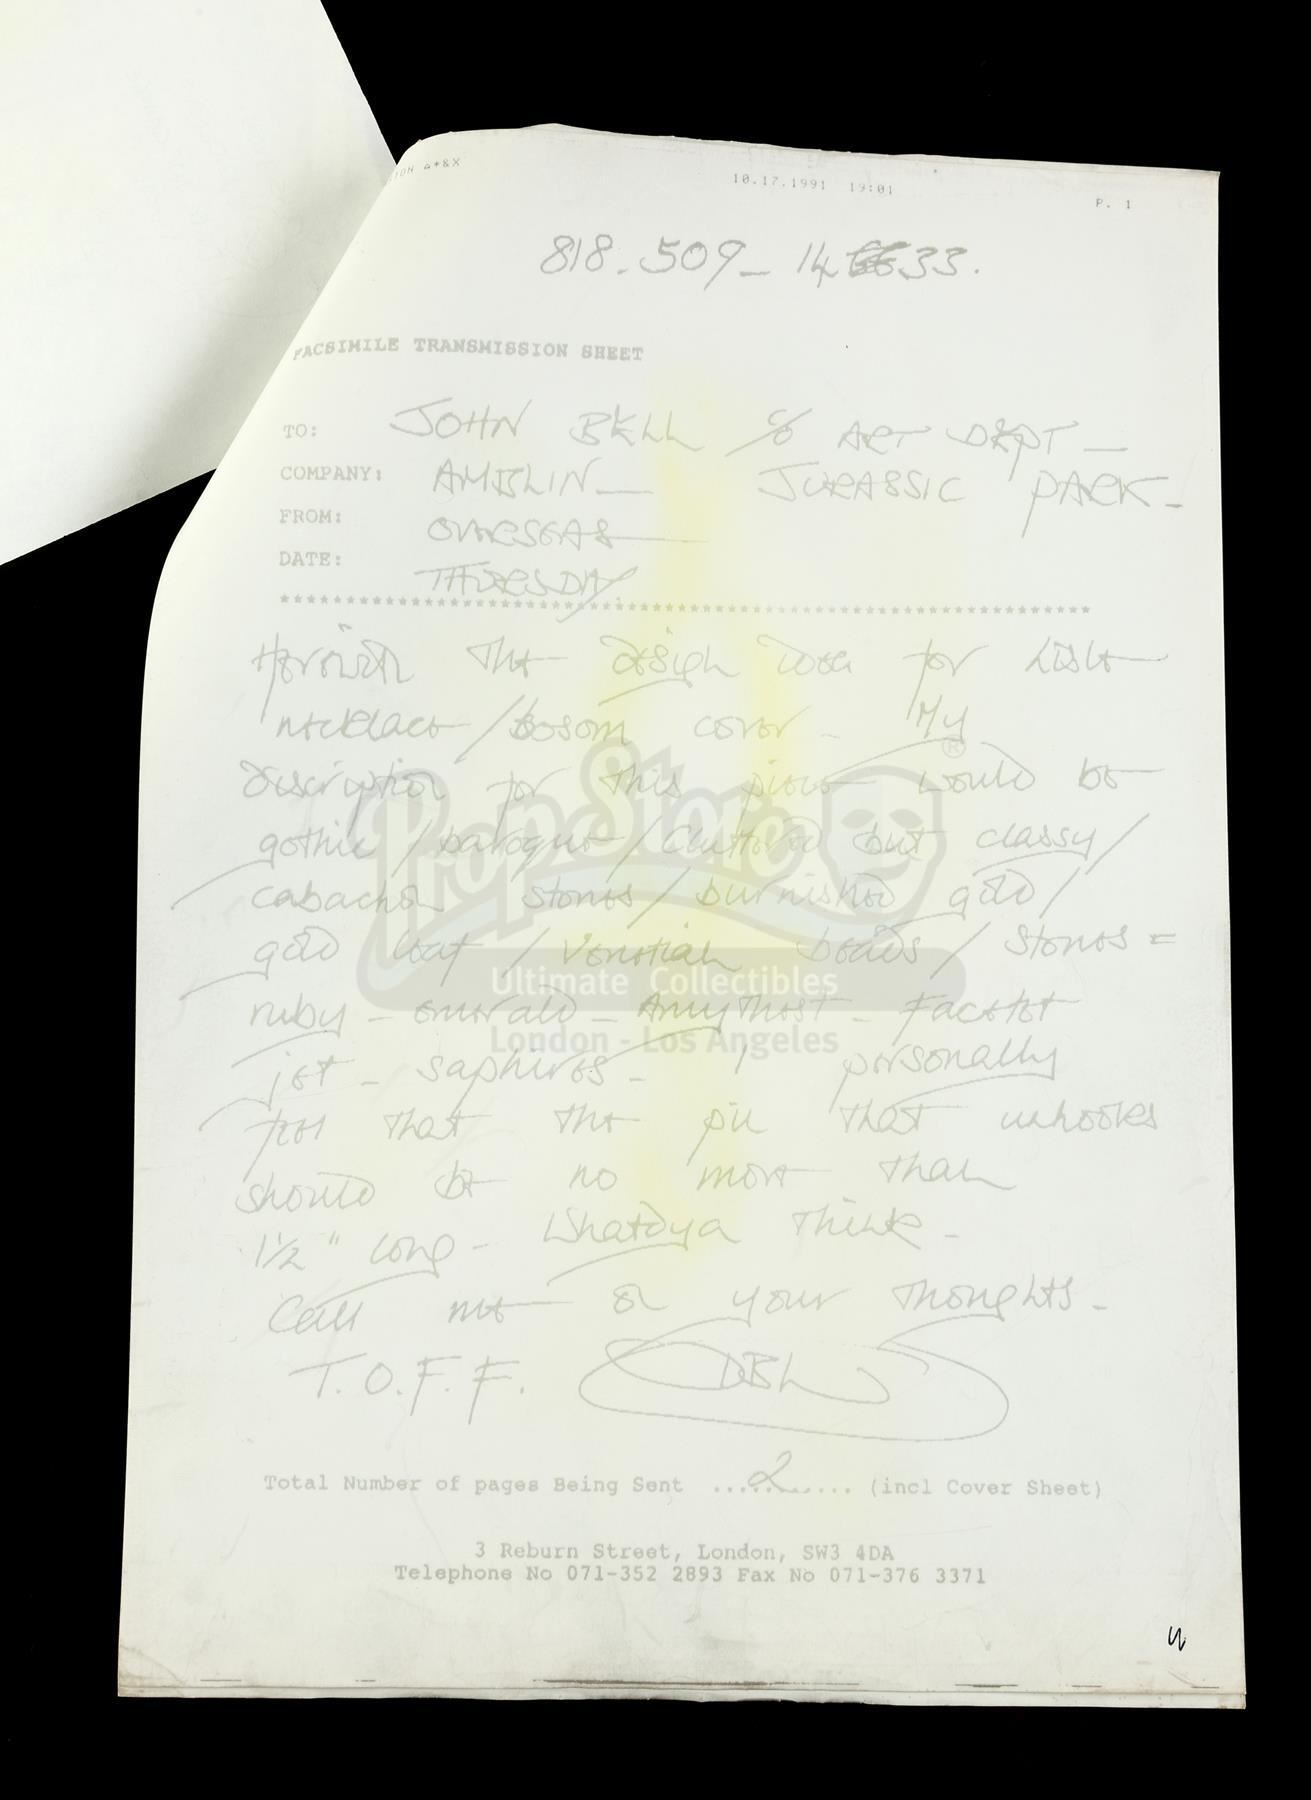 10.17.1991 19:01
P. 1
818-509-14 33.
FACSIMILE TRANSMISSION SHEET
TO: JOHN BELL c/o ART DEPT -
COMPANY: AMBLIN - JURASSIC PARK -
FROM: OVERSEAS
DATE: THURSDAY.
********************************************************************
Herewith the design idea for
necklace / bosom cover - My
description for this piece would be
gothic / baroque / cluttered but classy /
cabachon stones / burnished gold /
gold leaf / Venetian beads / Stones =
ruby - emerald - Amythest - Facetet
jet - saphires - I personally
feel that the pin that unhooks
should be no more than
1½" long - Whatdya think -
Call me on your thoughts -
T.O.F.F. DBL
Total Number of pages Being Sent ....2....... (incl Cover Sheet)
3 Reburn Street, London, SW3 4DA
Telephone No 071-352 2893 Fax No 071-376 3371
PropStore ®
Ultimate Collectibles
London - Los Angeles